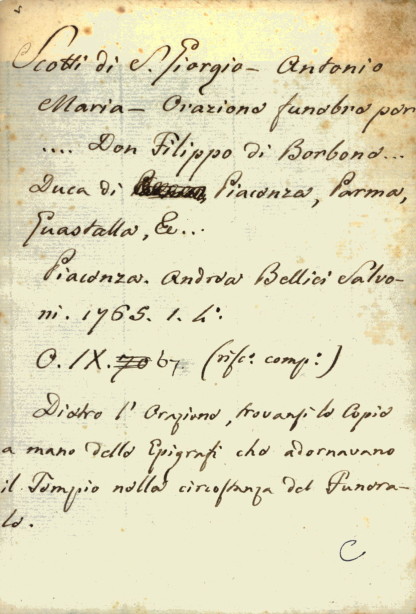 Scotti di S. Giorgio – Antonio
Maria – Orazione funebre per
.... Don Filippo di Borbone...
Duca di Piacenza, Parma,
Guastalla, &...
Piacenza. Andrea Bellici Salvo-
ni. 1765. 1. 4º.
O. IX. 70 67 (risc.º comp.º)
Dietro l' Orazione, trovansi le Copie
a mano delle Epigrafi che adornavano
il Tempio nella circostanza del Funera-
le.
C